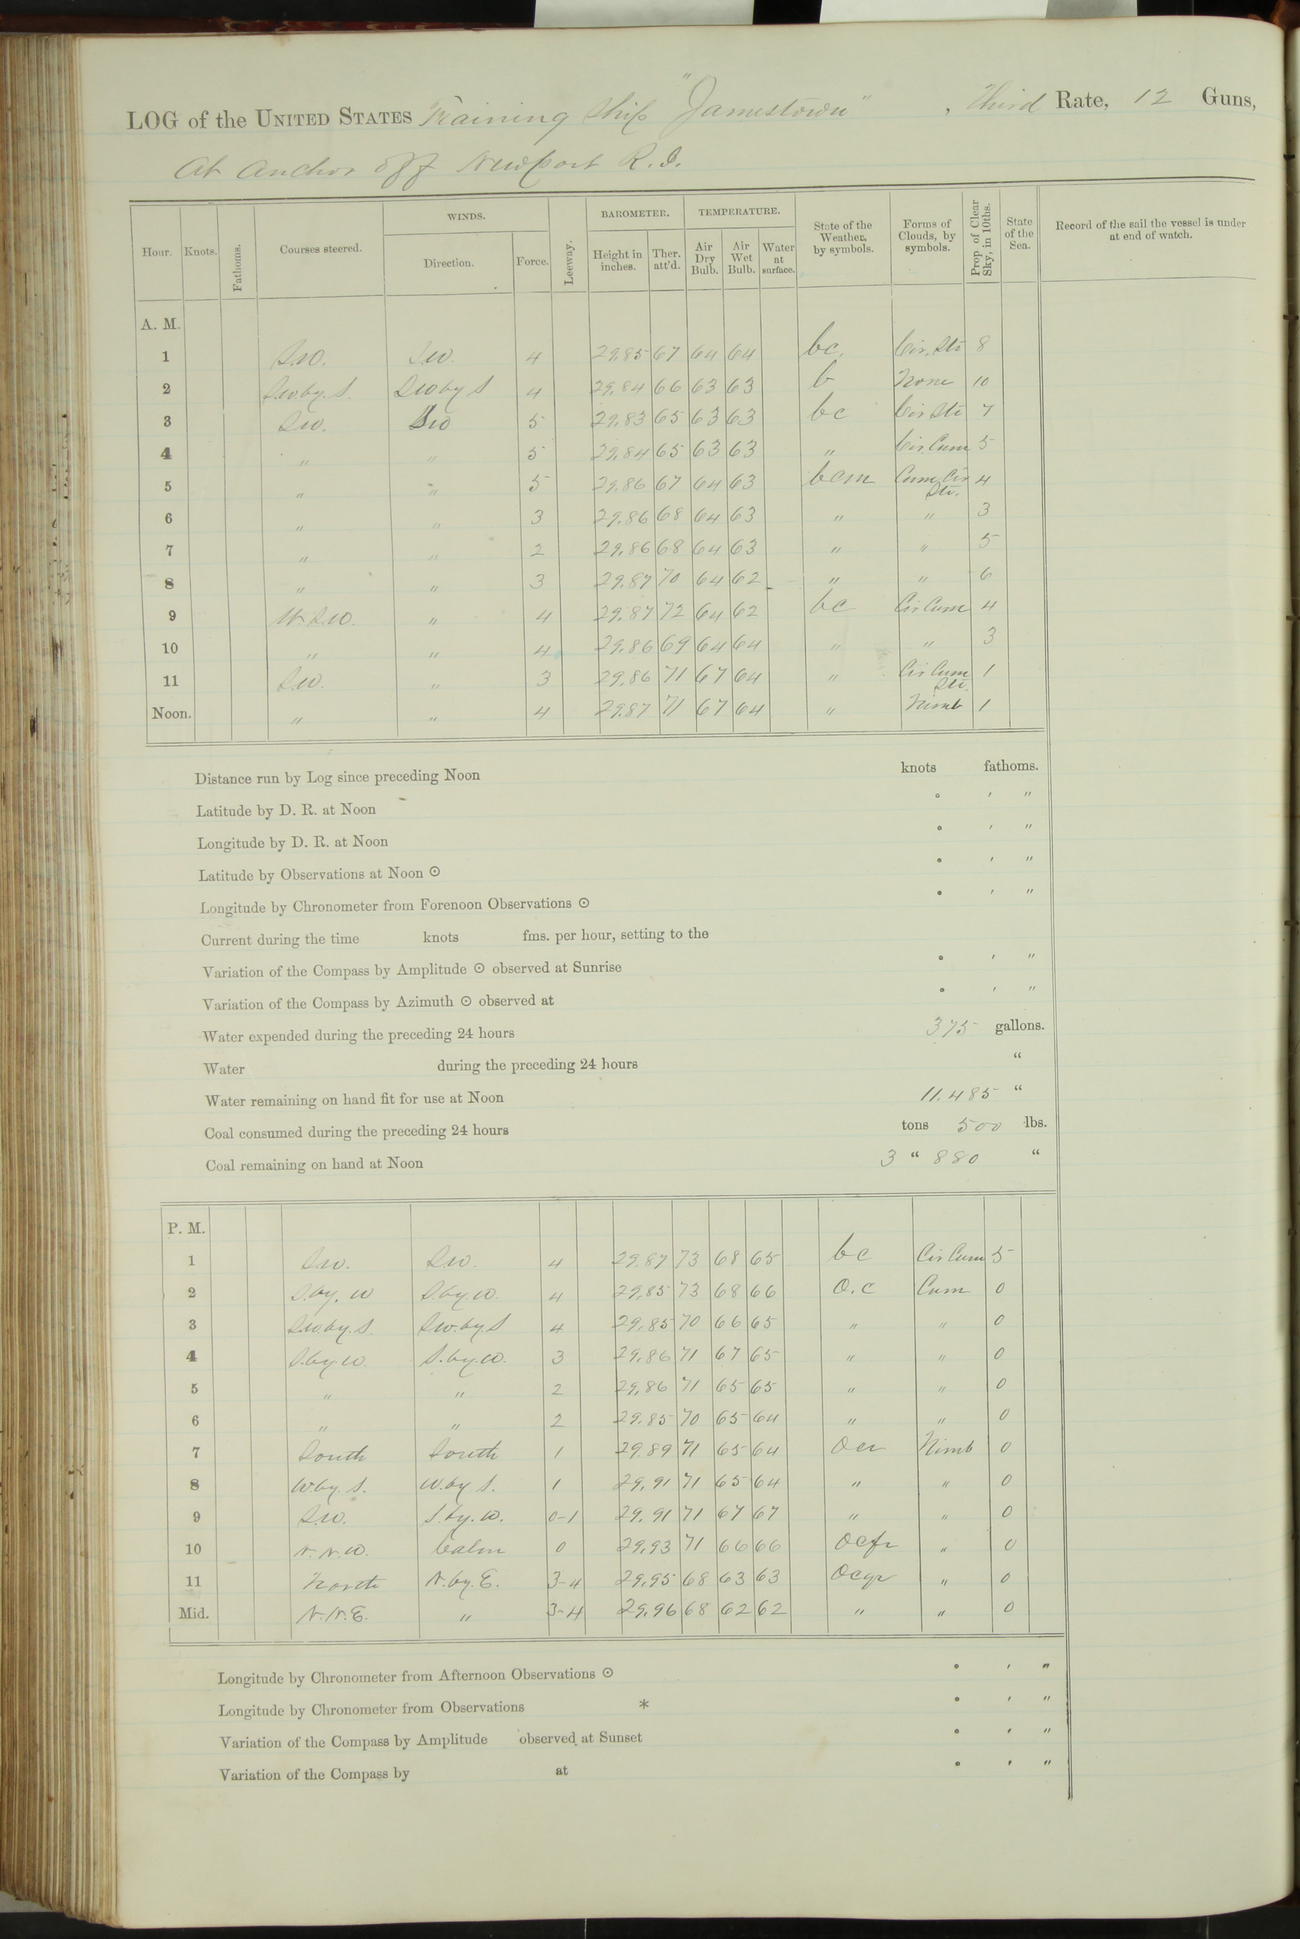 LOG of the UNITED STATES Training Ship "Jamestown", Third Rate, 12 Guns,
At Anchor off Newport R.I.
Hour. Knots. Fathoms. Courses steered. WINDS. Direction. Force. Leeway. BAROMETER. Height in inches. Ther. att'd. TEMPERATURE. Air Dry Bulb. Air Wet Bulb. Water at surface. State of the Weather, by symbols. Forms of Clouds, by symbols. Prop. of Clear Sky, in 10ths. State of the Sea. Record of the sail the vessel is under at end of watch.
A. M.
1 S.W. S.W. 4 29.85 67 64 64 bc. Cir. Str 8
2 S.W. by. S. S.W by S 4 29.84 66 63 63 b None 10
3 S.W. SW 5 29.83 65 63 63 bc Cir Str 7
4 " " 5 29.84 65 63 63 " Cir Cum 5
5 " " 5 29.86 67 64 63 bcm Cum Cir Str. 4
6 " " 3 29.86 68 64 63 " " 3
7 " " 2 29.86 68 64 63 " " 5
8 " " 3 29.87 70 64 62 " " 6
9 W.S.W. " 4 29.87 72 64 62 bc Cir Cum 4
10 " " 4 29.86 69 64 64 " " 3
11 S.W. " 3 29.86 71 67 64 " Cir Cum Str. 1
Noon. " " 4 29.87 71 67 64 " Nimb 1
Distance run by Log since preceding Noon knots fathoms.
Latitude by D. R. at Noon ° ' "
Longitude by D. R. at Noon ° ' "
Latitude by Observations at Noon ☉ ° ' "
Longitude by Chronometer from Forenoon Observations ☉ ° ' "
Current during the time knots fms. per hour, setting to the
Variation of the Compass by Amplitude ☉ observed at Sunrise ° ' "
Variation of the Compass by Azimuth ☉ observed at ° ' "
Water expended during the preceding 24 hours 375 gallons.
Water during the preceding 24 hours "
Water remaining on hand fit for use at Noon 11.485 "
Coal consumed during the preceding 24 hours tons 500 lbs.
Coal remaining on hand at Noon 3 " 880 "
P. M.
1 S.W. S.W. 4 29.87 73 68 65 bc Cir Cum 5
2 S. by. W S by. W. 4 29.85 73 68 66 O.c Cum 0
3 S.W. by. S. S.W. by S 4 29.85 70 66 65 " " 0
4 S. by W. S. by. W. 3 29.86 71 67 65 " " 0
5 " " 2 29.86 71 65 65 " " 0
6 " " 2 29.85 70 65 64 " " 0
7 South South 1 29.89 71 65 64 Ocr Nimb 0
8 W. by. S. W. by S. 1 29.91 71 65 64 " " 0
9 S.W. S. by. W. 0-1 29.91 71 67 67 " " 0
10 N.N.W. Calm 0 29.93 71 66 66 Ocfr " 0
11 North N. by. E. 3-4 29.95 68 63 63 Ocqr " 0
Mid. N.N.E. " 3-4 29.96 68 62 62 " " 0
Longitude by Chronometer from Afternoon Observations ☉ ° ' "
Longitude by Chronometer from Observations * ° ' "
Variation of the Compass by Amplitude observed at Sunset ° ' "
Variation of the Compass by at ° ' "